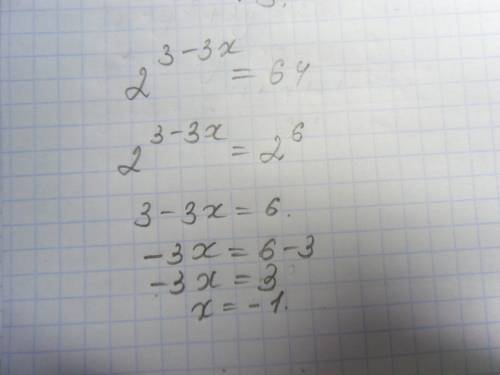 2^{3-3x} = 64
2^{3-3x} = 2^{6}
3-3x = 6.
-3x = 6-3
-3x = 3
x = -1.